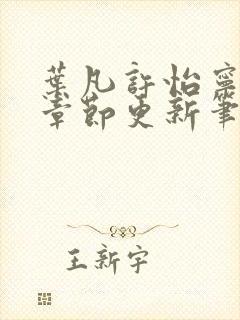 葉凡許怡寧
章節更新筆
王新宇